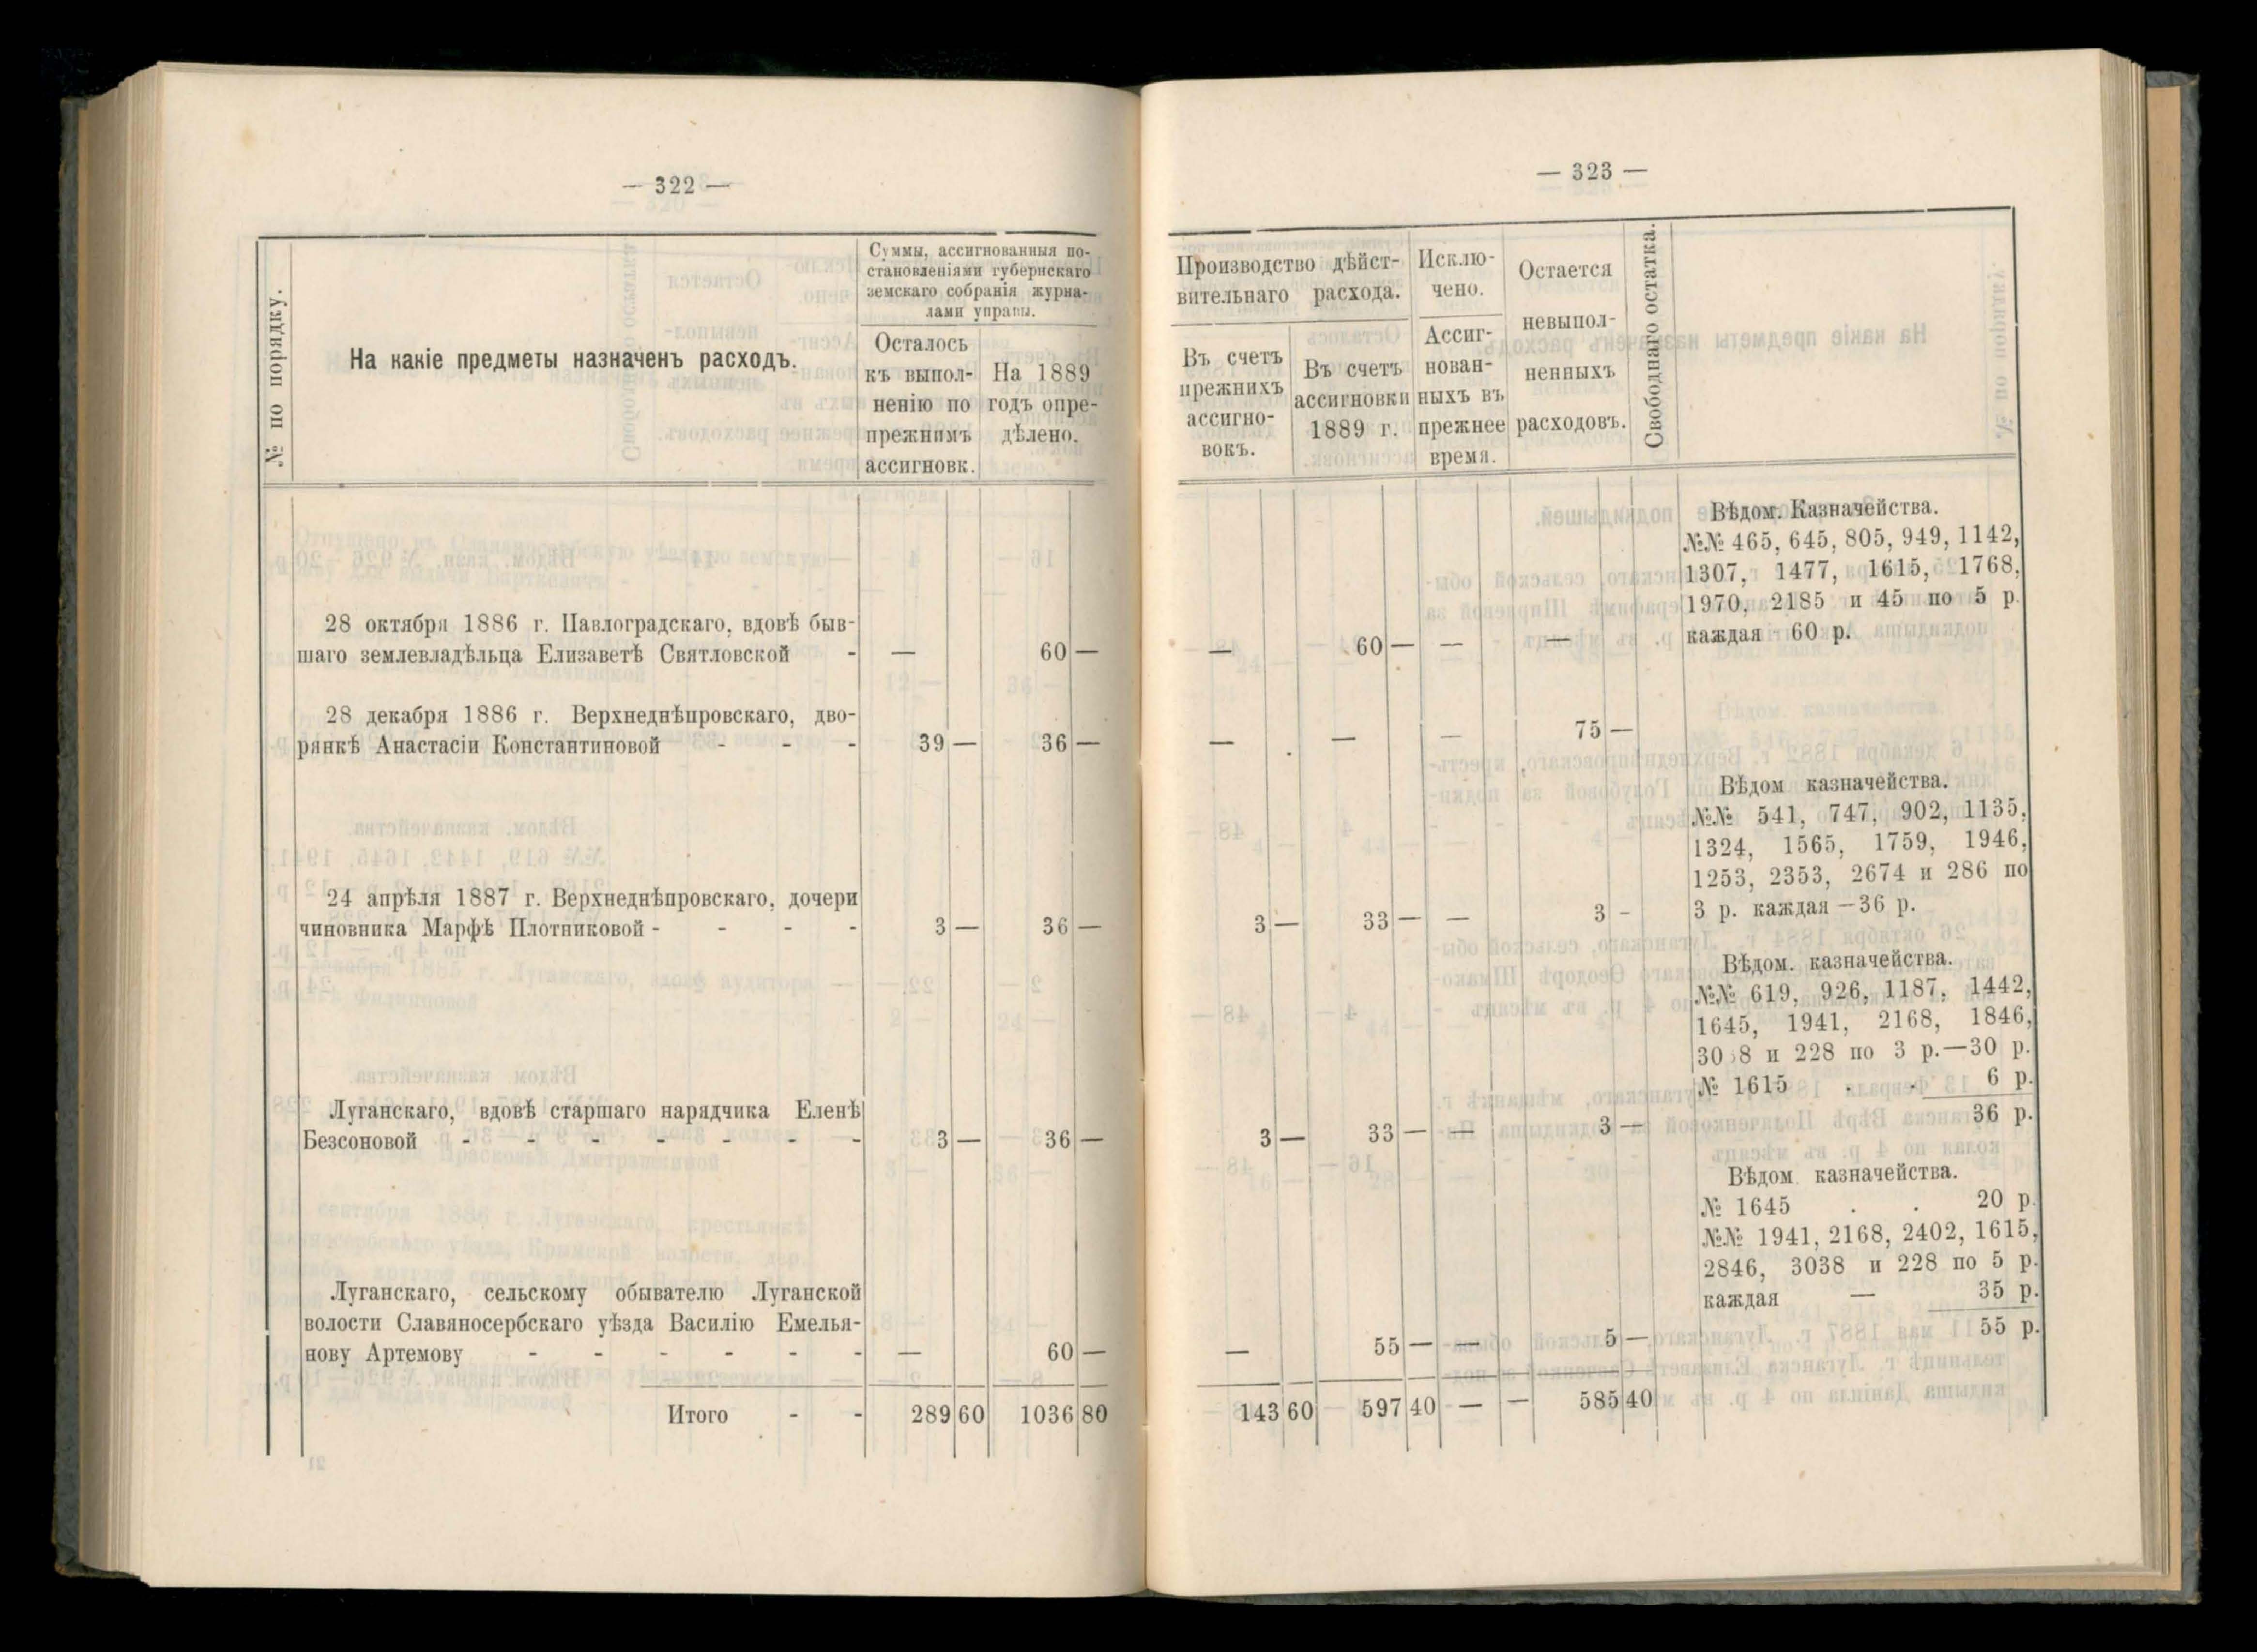 — 322 —
№ по порядку.
На какіе предметы назначенъ расходъ.
Суммы, ассигнованныя по-
становленіями губернскаго
земскаго собранія журна-
лами управы.
Осталось
къ выпол-
ненію по
прежнимъ
ассигновк.
На 1889
годъ опре-
дѣлено.
28 октября 1886 г. Павлоградскаго, вдовѣ быв-
шаго землевладѣльца Елизаветѣ Святловской - — 60 —
28 декабря 1886 г. Верхнеднѣпровскаго, дво-
рянкѣ Анастасіи Константиновой - - - 39 — 36 —
24 апрѣля 1887 г. Верхнеднѣпровскаго, дочери
чиновника Марфѣ Плотниковой - - - - 3 — 36 —
Луганскаго, вдовѣ старшаго нарядчика Еленѣ
Безсоновой - - - - - - - 3 — 36 —
Луганскаго, сельскому обывателю Луганской
волости Славяносербскаго уѣзда Василію Емелья-
нову Артемову - - - - - - — 60 —
Итого - - 289 60 1036 80
— 323 —
Производство дѣйст-
вительнаго расхода.
Въ счетъ
прежнихъ
ассигно-
вокъ.
Въ счетъ
ассигновки
1889 г.
Исклю-
чено.
Ассиг-
нован-
ныхъ въ
прежнее
время.
Остается
невыпол-
ненныхъ
расходовъ.
Свободнаго остатка.
Вѣдом. Казначейства.
№№ 465, 645, 805, 949, 1142,
1307, 1477, 1615, 1768,
1970, 2185 и 45 по 5 р.
каждая - 60 р.
— 60 — — —
— — — 75 —
Вѣдом казначейства.
№№ 541, 747, 902, 1135,
1324, 1565, 1759, 1946,
1253, 2353, 2674 и 286 по
3 р. каждая — 36 р.
3 — 33 — — 3 -
Вѣдом. казначейства.
№№ 619, 926, 1187, 1442,
1645, 1941, 2168, 1846,
и 228 по 3 р.—30 р.
№ 1615 . . 6 р.
36 р.
3 — 33 — — 3 —
Вѣдом. казначейства.
№ 1645 . . 20 р.
№№ 1941, 2168, 2402, 1615,
2846, 3038 и 228 по 5 р.
каждая — 35 р.
55 р.
— 55 — — 5 —
143 60 597 40 — — 585 40